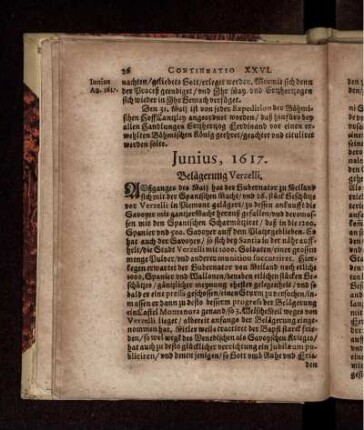 26 CONTINUATIO XXVI.
Junius
Aõ. 1617.
nachten/geliebts Gott/erlegt werden. Womit sich denn
der Proceß geendiget/vnd Ihr Kön. vnd Ertzhertzogen
sich wieder in Ihr Gemach verfüget.
Den 31. Maij ist von jeder Expedition der Böhmi-
schen HoffCantzley angeordnet worden/ daß hinfüro bey
allen Handlungen Ertzhertzog Ferdinand vor einen er-
wehlten Böhmischen König geehret/geachtet vnd titulirt
werden solte.
Junius, 1617.
Belägerung Verzelli.
Außgangs des Maij hat der Gubernator zu Meiland
sich mit der Spanischen Macht/ vnd 26. stück Geschütz
vor Verzelli in Piemont gelägert/ zu dessen ankunfft die
Savoyer mit gantzer Macht herauß gefallen/
mit den Spanischen Scharmützirt/ daß in die 1200.
Spanier vnd 900. Savoyer auff dem Platz geblieben. So
hat auch der Savoyer/ so sich bey Santia in der nähe auff-
helt/ die Stadt Verzelli mit 1000. Soldaten/ einer grossen
menge Pulver/ vnd anderer munition succurriret. Hier-
gegen erwartet der Gubernator von Meiland noch etlich
1000. Spanier vnd Wallonen/ beneben etlichen stücken Ge-
schützes/ gäntzlicher meynung
bald er eine pressa geschossen/ einen Sturm zu versuchen/
massen er dann zu desto besserm progress der Belägerung
ein Castel Montenora genand/ so 3. Welsche Meil weges von
Verzelli lieget/ albereit anfangs der Belägerung einge-
nommen hat. Mitler weil tractiret der Bapst starck frie-
den/ so wol wegen des Venedischen als Savoyschen Krieges/
hat auch zu desto glücklicher verrichtung ein Jubilæum pu-
bliciren/ vnd denen jenigen/ so Gott vmb Ruhe vnd Frie-
den